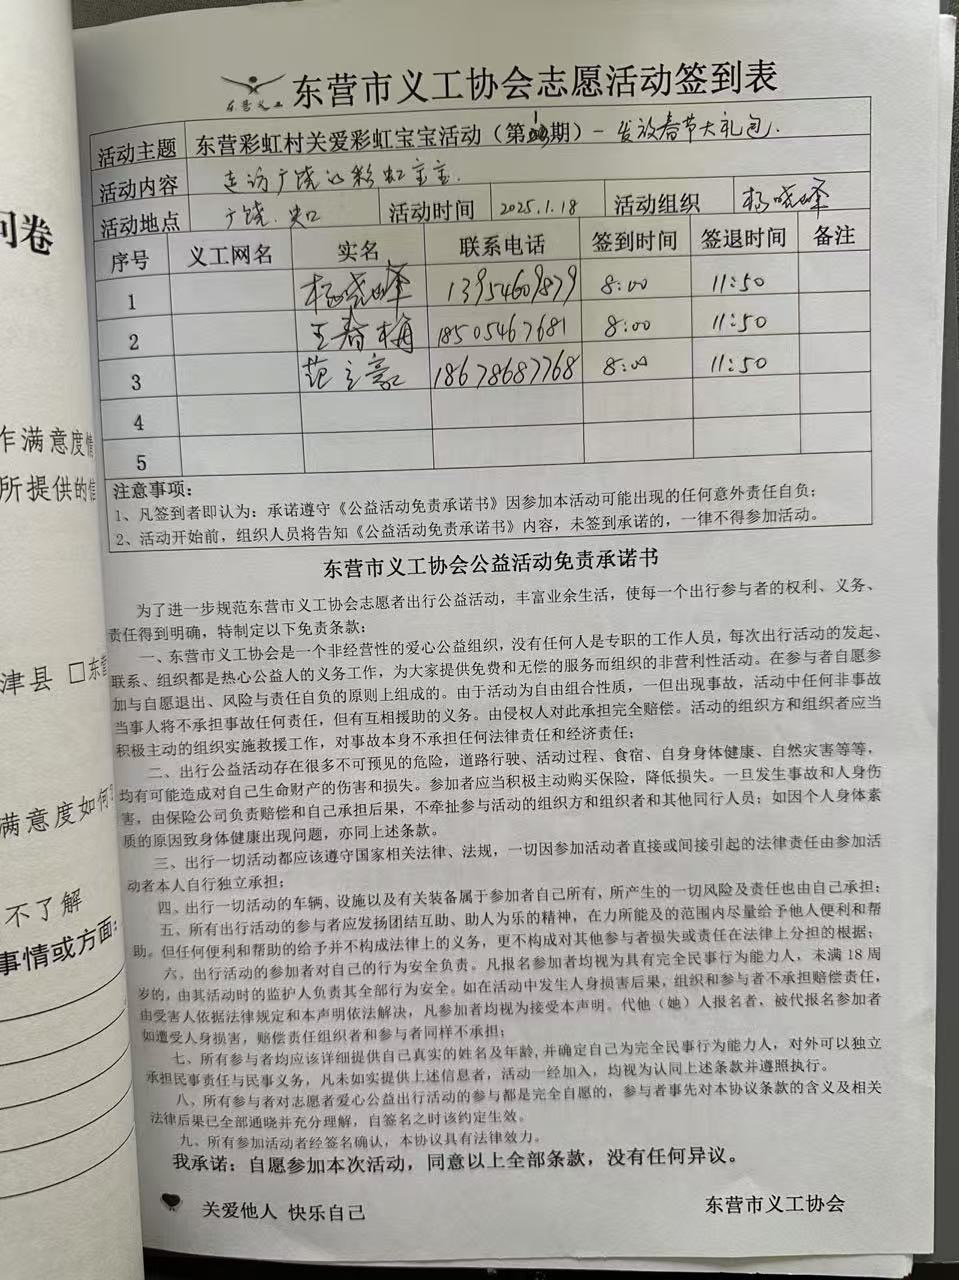 问卷
作满意度情
所提供的信
津县 □东营
满意度如何
不了解
事情或方面:
东营义工 东营市义工协会志愿活动签到表
活动主题 东营彩虹村关爱彩虹宝宝活动（第 期）- 发放春节大礼包.
活动内容 走访广饶的彩虹宝宝.
活动地点 广饶. 活动时间 2025.1.18 活动组织 杨晓峰
序号 义工网名 实名 联系电话 签到时间 签退时间 备注
1 杨晓峰 13954609879 8:00 11:50
2 王春梅 18505467681 8:00 11:50
3 范立豪 18678687768 8:00 11:50
4
5
注意事项：
1、凡签到者即认为：承诺遵守《公益活动免责承诺书》因参加本活动可能出现的任何意外责任自负；
2、活动开始前，组织人员将告知《公益活动免责承诺书》内容，未签到承诺的，一律不得参加活动。
东营市义工协会公益活动免责承诺书
为了进一步规范东营市义工协会志愿者出行公益活动，丰富业余生活，使每一个出行参与者的权利、义务、
责任得到明确，特制定以下免责条款；
一、东营市义工协会是一个非经营性的爱心公益组织，没有任何人是专职的工作人员，每次出行活动的发起、
联系、组织都是热心公益人的义务工作，为大家提供免费和无偿的服务而组织的非营利性活动。在参与者自愿参
加与自愿退出、风险与责任自负的原则上组成的。由于活动为自由组合性质，一但出现事故，活动中任何非事故
当事人将不承担事故任何责任，但有互相援助的义务。由侵权人对此承担完全赔偿。活动的组织方和组织者应当
积极主动的组织实施救援工作，对事故本身不承担任何法律责任和经济责任；
二、出行公益活动存在很多不可预见的危险，道路行驶、活动过程、食宿、自身身体健康、自然灾害等等，
均有可能造成对自己生命财产的伤害和损失。参加者应当积极主动购买保险，降低损失。一旦发生事故和人身伤
害，由保险公司负责赔偿和自己承担后果，不牵扯参与活动的组织方和组织者和其他同行人员；如因个人身体素
质的原因致身体健康出现问题，亦同上述条款。
三、出行一切活动都应该遵守国家相关法律、法规，一切因参加活动者直接或间接引起的法律责任由参加活
动者本人自行独立承担；
四、出行一切活动的车辆、设施以及有关装备属于参加者自己所有，所产生的一切风险及责任也由自己承担；
五、所有出行活动的参与者应发扬团结互助、助人为乐的精神，在力所能及的范围内尽量给予他人便利和帮
助。但任何便利和帮助的给予并不构成法律上的义务，更不构成对其他参与者损失或责任在法律上分担的根据；
六、出行活动的参加者对自己的行为安全负责。凡报名参加者均视为具有完全民事行为能力人，未满 18 周
岁的，由其活动时的监护人负责其全部行为安全。如在活动中发生人身损害后果，组织和参与者不承担赔偿责任，
由受害人依据法律规定和本声明依法解决，凡参加者均视为接受本声明。代他（她）人报名者，被代报名参加者
如遭受人身损害，赔偿责任组织者和参与者同样不承担；
七、所有参与者均应该详细提供自己真实的姓名及年龄,并确定自己为完全民事行为能力人，对外可以独立
承担民事责任与民事义务，凡未如实提供上述信息者，活动一经加入，均视为认同上述条款并遵照执行。
八、所有参与者对志愿者爱心公益出行活动的参与都是完全自愿的，参与者事先对本协议条款的含义及相关
法律后果已全部通晓并充分理解，自签名之时该约定生效。
九、所有参加活动者经签名确认，本协议具有法律效力。
我承诺：自愿参加本次活动，同意以上全部条款，没有任何异议。
关爱他人 快乐自己 东营市义工协会